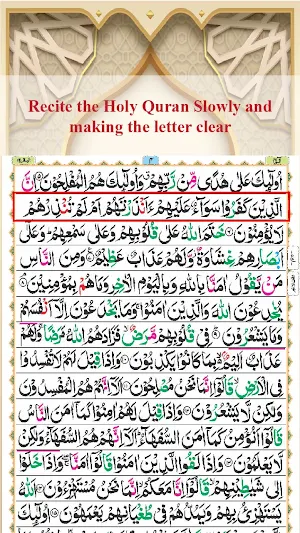 Recite the Holy Quran Slowly and
making the letter clear
اُولٰٓئِكَ عَلٰى هُدًى مِّنْ رَّبِّهِمْ ۙ وَاُولٰٓئِكَ هُمُ الْمُفْلِحُوْنَ ۝ اِنَّ
الَّذِيْنَ كَفَرُوْا سَوَآءٌ عَلَيْهِمْ ءَاَنْذَرْتَهُمْ اَمْ لَمْ تُنْذِرْهُمْ
لَا يُؤْمِنُوْنَ ۝ خَتَمَ اللّٰهُ عَلٰى قُلُوْبِهِمْ وَعَلٰى سَمْعِهِمْ ۖ وَعَلٰٓى
اَبْصَارِهِمْ غِشَاوَةٌ وَّلَهُمْ عَذَابٌ عَظِيْمٌ ۝ وَمِنَ النَّاسِ
مَنْ يَّقُوْلُ اٰمَنَّا بِاللّٰهِ وَبِالْيَوْمِ الْاٰخِرِ وَمَا هُمْ بِمُؤْمِنِيْنَ ۝
يُخٰدِعُوْنَ اللّٰهَ وَالَّذِيْنَ اٰمَنُوْا ۚ وَمَا يَخْدَعُوْنَ اِلَّآ اَنْفُسَهُمْ
وَمَا يَشْعُرُوْنَ ۝ فِيْ قُلُوْبِهِمْ مَّرَضٌ ۙ فَزَادَهُمُ اللّٰهُ مَرَضًا ۚ وَلَهُمْ
عَذَابٌ اَلِيْمٌ ۙ بِمَا كَانُوْا يَكْذِبُوْنَ ۝ وَاِذَا قِيْلَ لَهُمْ لَا تُفْسِدُوْا
فِي الْاَرْضِ ۙ قَالُوْٓا اِنَّمَا نَحْنُ مُصْلِحُوْنَ ۝ اَلَآ اِنَّهُمْ هُمُ الْمُفْسِدُوْنَ
وَلٰكِنْ لَّا يَشْعُرُوْنَ ۝ وَاِذَا قِيْلَ لَهُمْ اٰمِنُوْا كَمَآ اٰمَنَ النَّاسُ
قَالُوْٓا اَنُؤْمِنُ كَمَآ اٰمَنَ السُّفَهَآءُ ۗ اَلَآ اِنَّهُمْ هُمُ السُّفَهَآءُ وَلٰكِنْ
لَّا يَعْلَمُوْنَ ۝ وَاِذَا لَقُوا الَّذِيْنَ اٰمَنُوْا قَالُوْٓا اٰمَنَّا ۖ وَاِذَا خَلَوْا
اِلٰى شَيٰطِيْنِهِمْ ۙ قَالُوْٓا اِنَّا مَعَكُمْ ۙ اِنَّمَا نَحْنُ مُسْتَهْزِءُوْنَ ۝ اَللّٰهُ
يَسْتَهْزِئُ بِهِمْ وَيَمُدُّهُمْ فِيْ طُغْيَانِهِمْ يَعْمَهُوْنَ ۝ اُولٰٓئِكَ